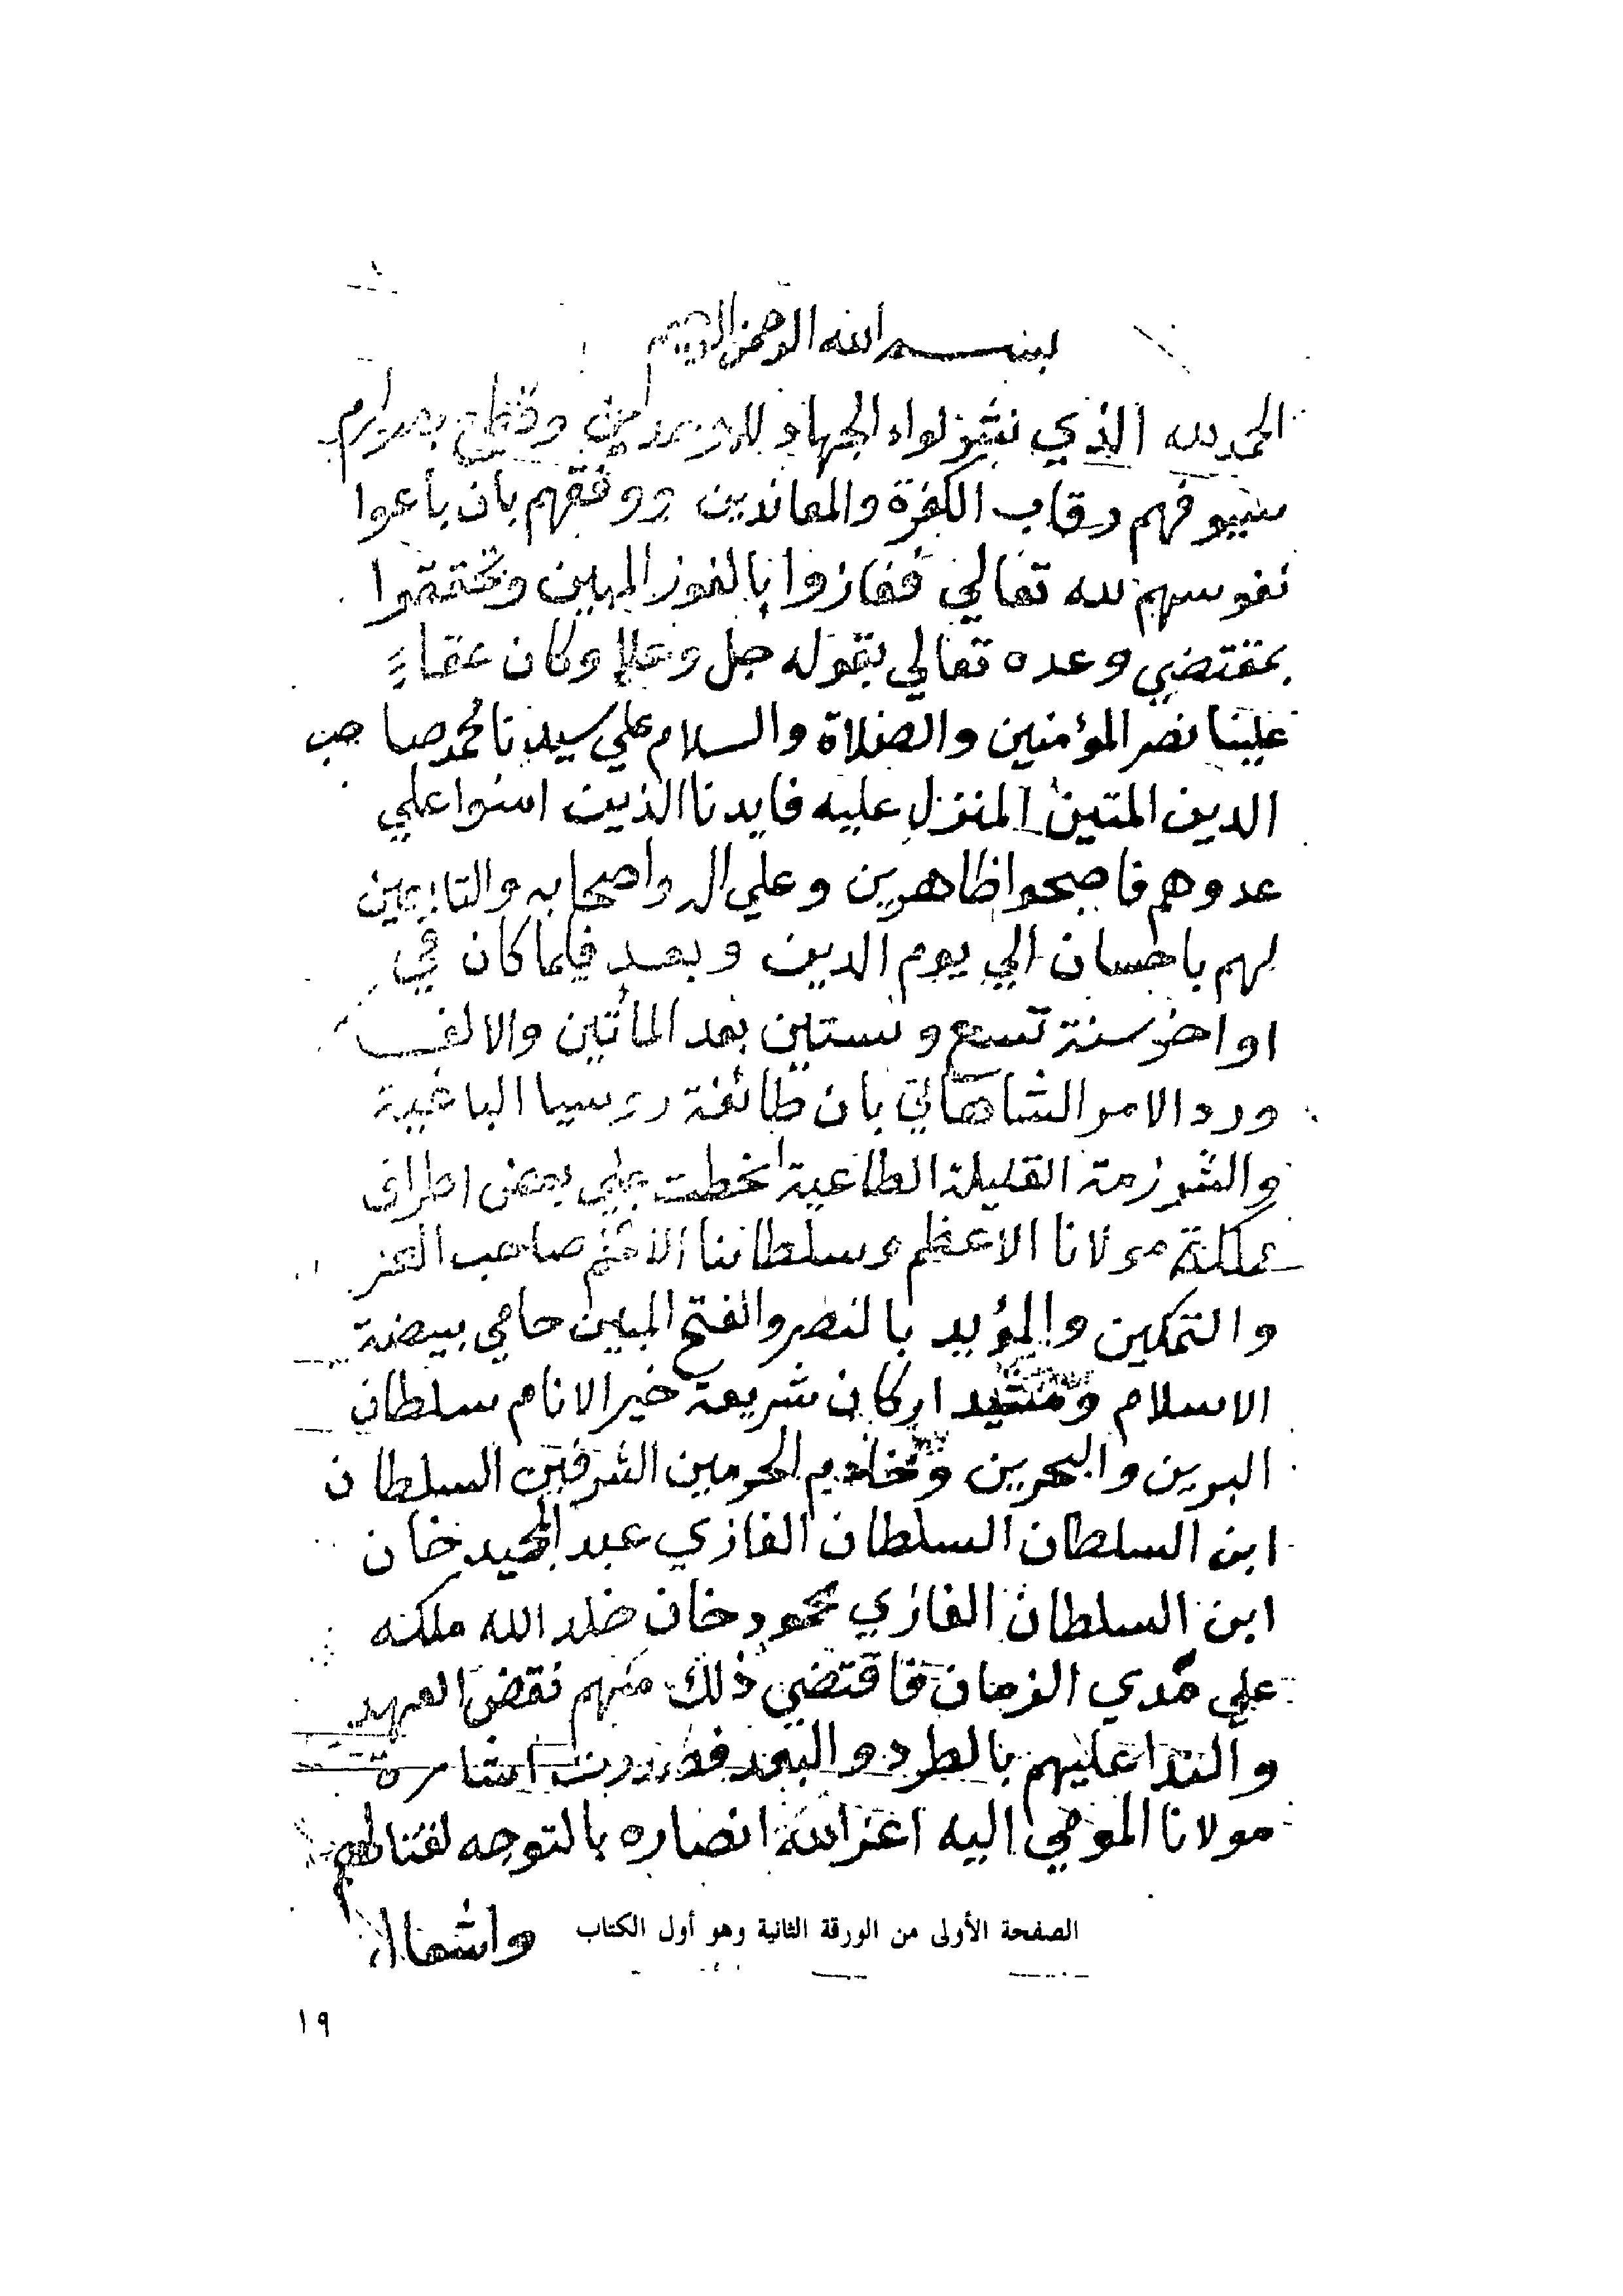 بسم الله الرحمن الرحيم
الحمد لله الذي نشر لواء الجهاد وقطع بصوارم
سيوفهم رقاب الكفرة والمعاندين ووفقهم بان باعوا
نفوسهم لله تعالي ففازوا بالفوز المبين وتحققوا
بمقتضي وعده تعالي بقوله جل وعلا وكان حقا
علينا نصر المؤمنين والصلاة والسلام علي سيدنا محمد صاحب
الدين المتين المنزل عليه فايدنا الذين امنوا علي
عدوهم فاصبحوا ظاهرين وعلي اله واصحابه والتابعين
لهم باحسان الي يوم الدين وبعد فلما كان في
اواخر سنة تسع وستين بعد المأتين والالف
ورد الامر الشاهاني بان طائفة روسيا الباغية
والشرزمة القليلة الطاغية تخطت علي بعض اطراف
مملكة مولانا الاعظم وسلطاننا الافخم صاحب العز
والتمكين والمؤيد بالنصر والفتح المبين حامي بيضة
الاسلام ومشيد اركان شريعة خير الانام سلطان
البرين والبحرين وخادم الحرمين الشرفين السلطان
ابن السلطان السلطان الغازي عبد المجيد خان
ابن السلطان الغازي محمود خان خلد الله ملكه
علي مدي الزمان فاقتضي ذلك منهم نقض العهد
والندا عليهم بالطرد والبعد فصدرت اشارة
مولانا المومي اليه اعز الله انصاره بالتوجه لقتالهم
واشعال
الصفحة الأولى من الورقة الثانية وهو أول الكتاب
١٩